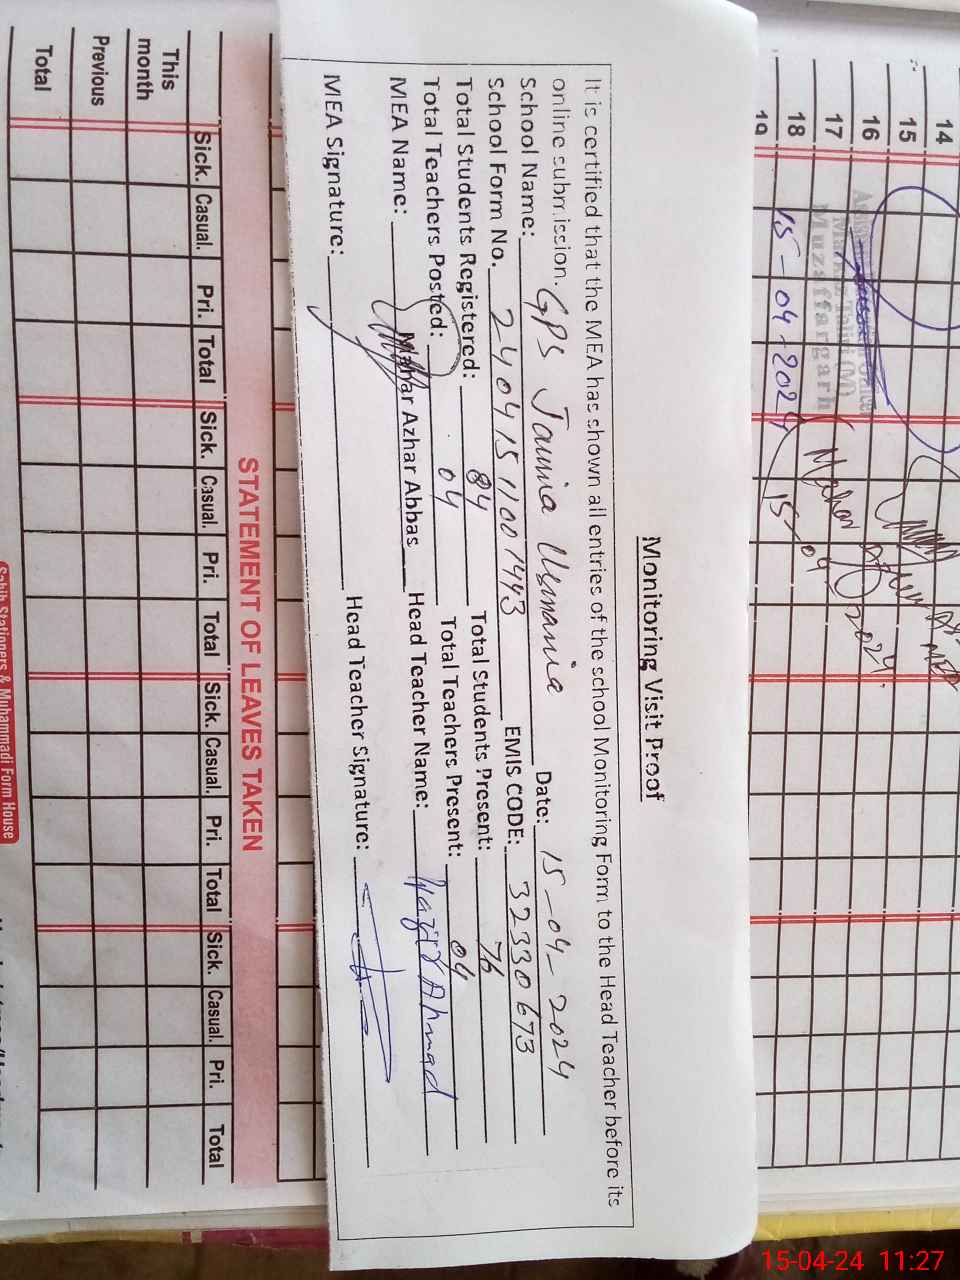 14
15
16
17
18
19
Muzaffargarh
15-04-2024
15-04-2024
Monitoring Visit Proof
It is certified that the MEA has shown all entries of the school Monitoring Form to the Head Teacher before its
online submission.
School Name: GPS Jamia Usmania Date: 15-04-2024
School Form No. 24041511001443 EMIS CODE: 32330673
Total Students Registered: 84 Total Students Present: 76
Total Teachers Posted: 04 Total Teachers Present: 04
MEA Name: Mahar Azhar Abbas Head Teacher Name: Ahmad
MEA Signature: Head Teacher Signature:
STATEMENT OF LEAVES TAKEN
Sick. Casual. Pri. Total Sick. Casual. Pri. Total Sick. Casual. Pri. Total Sick. Casual. Pri. Total
This month
Previous
Total
Sahib Stationers & Muhammadi Form House
15-04-24 11:27